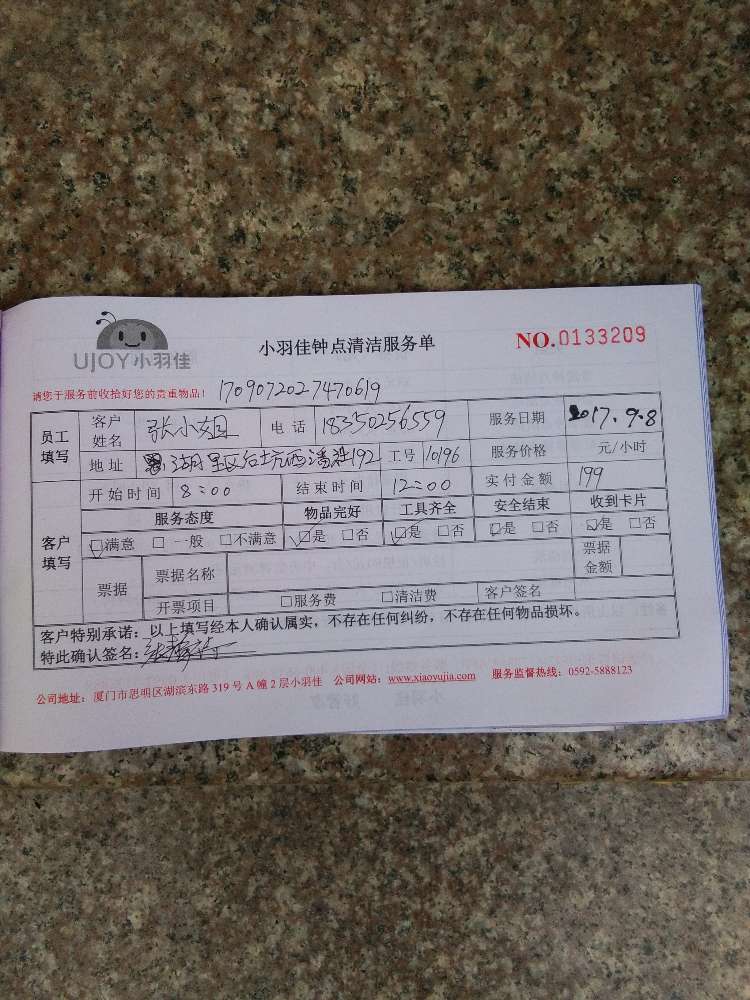 UJOY小羽佳
小羽佳钟点清洁服务单
NO.0133209
请您于服务前收拾好您的贵重物品！ 1709072027470619
员工填写 客户姓名 张小姐 电话 18350256559 服务日期 2017.9.8
地址 湖里区 192 工号 10196 服务价格 元/小时
客户填写 开始时间 8:00 结束时间 12:00 实付金额 199
服务态度 物品完好 工具齐全 安全结束 收到卡片
☑满意 □一般 □不满意 ☑是 □否 ☑是 □否 ☑是 □否 ☑是 □否
票据 票据名称 票据金额
开票项目 □服务费 □清洁费 客户签名
客户特别承诺：以上填写经本人确认属实，不存在任何纠纷，不存在任何物品损坏。
特此确认签名：
公司地址：厦门市思明区湖滨东路 319 号 A 幢 2 层小羽佳 公司网站：www.xiaoyujia.com 服务监督热线：0592-5888123